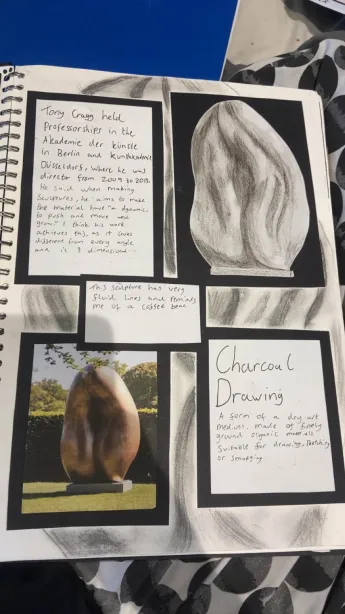 Tony Cragg held
Professorships in the
Akademie der Künste
in Berlin and Kunstakademie
Düsseldorf, where he was
director from 2009 to 2013.
He said when making
sculptures, he aims to make
the material have "a dynamic,
to push and move and
grow". I think his work
achieves this, as it looks
different from every angle
and is 3 dimensional
This sculpture has very
fluid lines and reminds
me of a coffee bean
Charcoal
Drawing
A form of a dry art
medium, made of finely
ground organic materials.
Suitable for drawing, sketching
or smudging